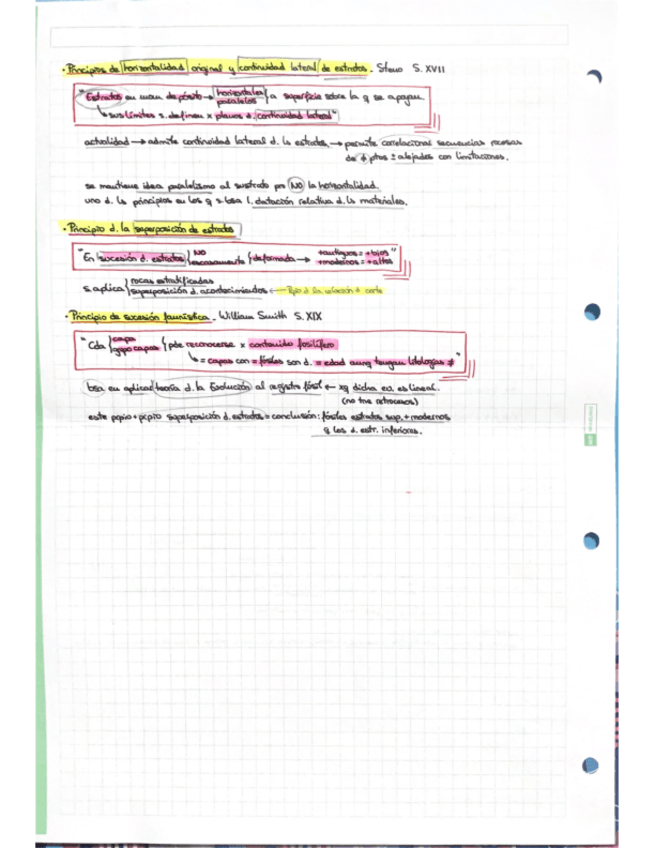 · Principios de horizontalidad original y continuidad lateral de estratos. Steno S. XVII
"Estratos en mom. de pósito → horizontales paralelos } a superficie sobre la q se apoyan.
↳ sus límites s. definen x planos d. continuidad lateral"
actualidad → admite continuidad lateral d. ls estratos → permite correlacionar secuencias rocosas
de ≠ ptos ± alejados con limitaciones.
se mantiene idea paralelismo al sustrato pero NO la horizontalidad.
uno d. ls principios en los q s. basa l. datación relativa d. ls materiales.
· Principio d. la superposición de estratos
"En sucesión d. estratos { NO escasamente } deformada → + antiguos = + bajos + modernos = + altos"
s. aplica { rocas estratificadas
superposición d. acontecimientos ← Ppio d. la relación d. corte
· Principio de sucesión faunística. William Smith S. XIX
"Cda { capa grupo capas } pde reconocerse x contenido fosilífero
↳ = capas con = fósiles son d. = edad aunq tengan litologías ≠"
basa en aplicar teoría d. la Evolución al registro fósil ← xq dicha ev. es lineal.
(no tne retrocesos)
este ppio + ppio superposición d. estratos = conclusión: fósiles estratos sup. + modernos
q los d. estr. inferiores.